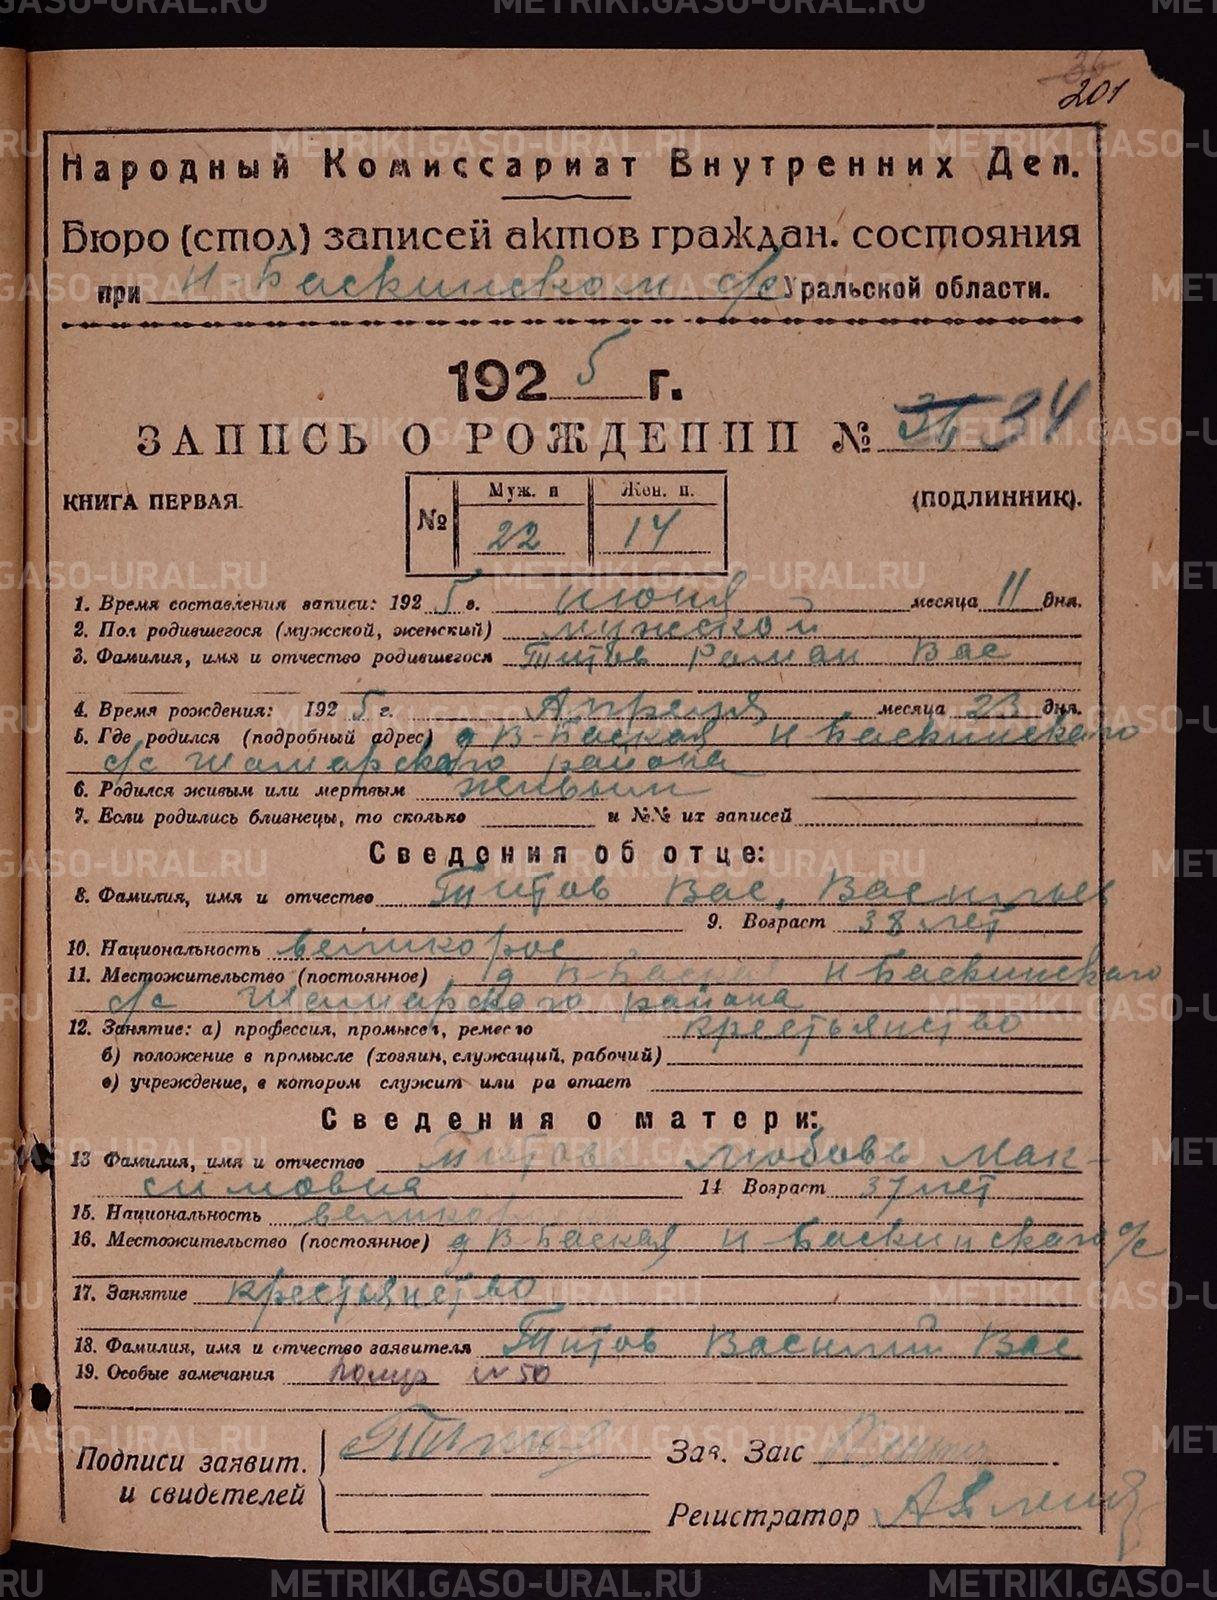 201
Народный Комиссариат Внутренних Дел.
Бюро (стол) записей актов граждан. состояния
при Н Баскинском с/с Уральской области.
1925 г.
ЗАПИСЬ О РОЖДЕНИИ № 36 34
КНИГА ПЕРВАЯ. № Муж. п Жен. п. (ПОДЛИННИК).
22 14
1. Время составления записи: 1925 г. июня месяца 11 дня.
2. Пол родившегося (мужской, женский) мужской
3. Фамилия, имя и отчество родившегося Титов Роман Вас
4. Время рождения: 1925 г. Апреля месяца 23 дня.
5. Где родился (подробный адрес) д В-Баская Н Баскинского
с/с Шамарского района
6. Родился живым или мертвым живым
7. Если родились близнецы, то сколько и №№ их записей
Сведения об отце:
8. Фамилия, имя и отчество Титов Вас. Васильев
9. Возраст 38 лет
10. Национальность великорос
11. Местожительство (постоянное) д В-Баская Н Баскинского
с/с Шамарского района
12. Занятие: а) профессия, промысел, ремесло крестьянство
б) положение в промысле (хозяин, служащий, рабочий)
в) учреждение, в котором служит или ра отает
Сведения о матери:
13 Фамилия, имя и отчество Титова Любовь Мак-
симовна 14 Возраст 37 лет
15. Национальность
16. Местожительство (постоянное) д В-Баская Н-Баскинского с/с
17. Занятие крестьянство
18. Фамилия, имя и отчество заявителя Титов Василий Вас
19. Особые замечания помер № 50
Подписи заявит. Зав. Загс
и свидетелей
Регистратор
METRIKI.GASO-URAL.RU